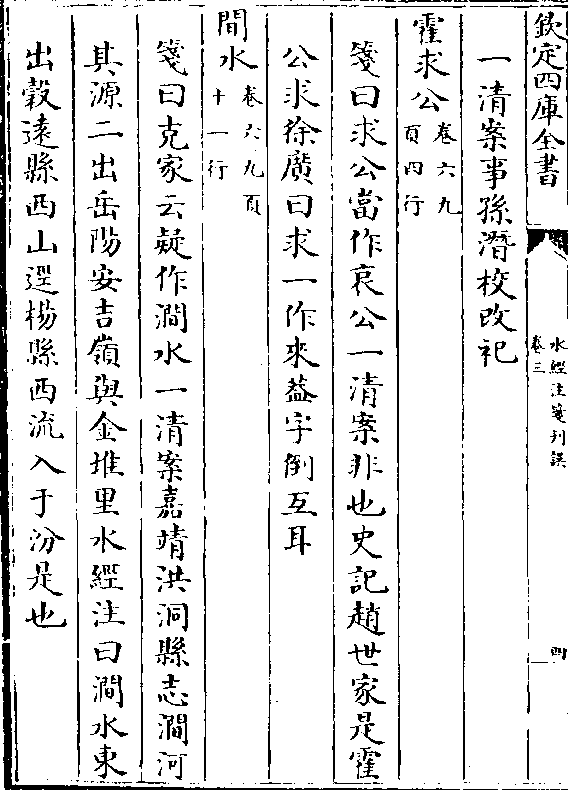 欽定四庫全書
水經注箋刋誤
卷三
四
一清案事孫潛校改祀
霍求公卷六九
頁四行
箋曰求公當作哀公一清案非也史記趙世家是霍
公求徐廣曰求一作來葢字倒互耳
間水卷六九頁
十一行
箋曰克家云疑作澗水一清案嘉靖洪洞縣志澗河
其源二出岳陽安吉嶺與金堆里水經注曰澗水東
出穀遠縣西山逕楊縣西流入于汾是也